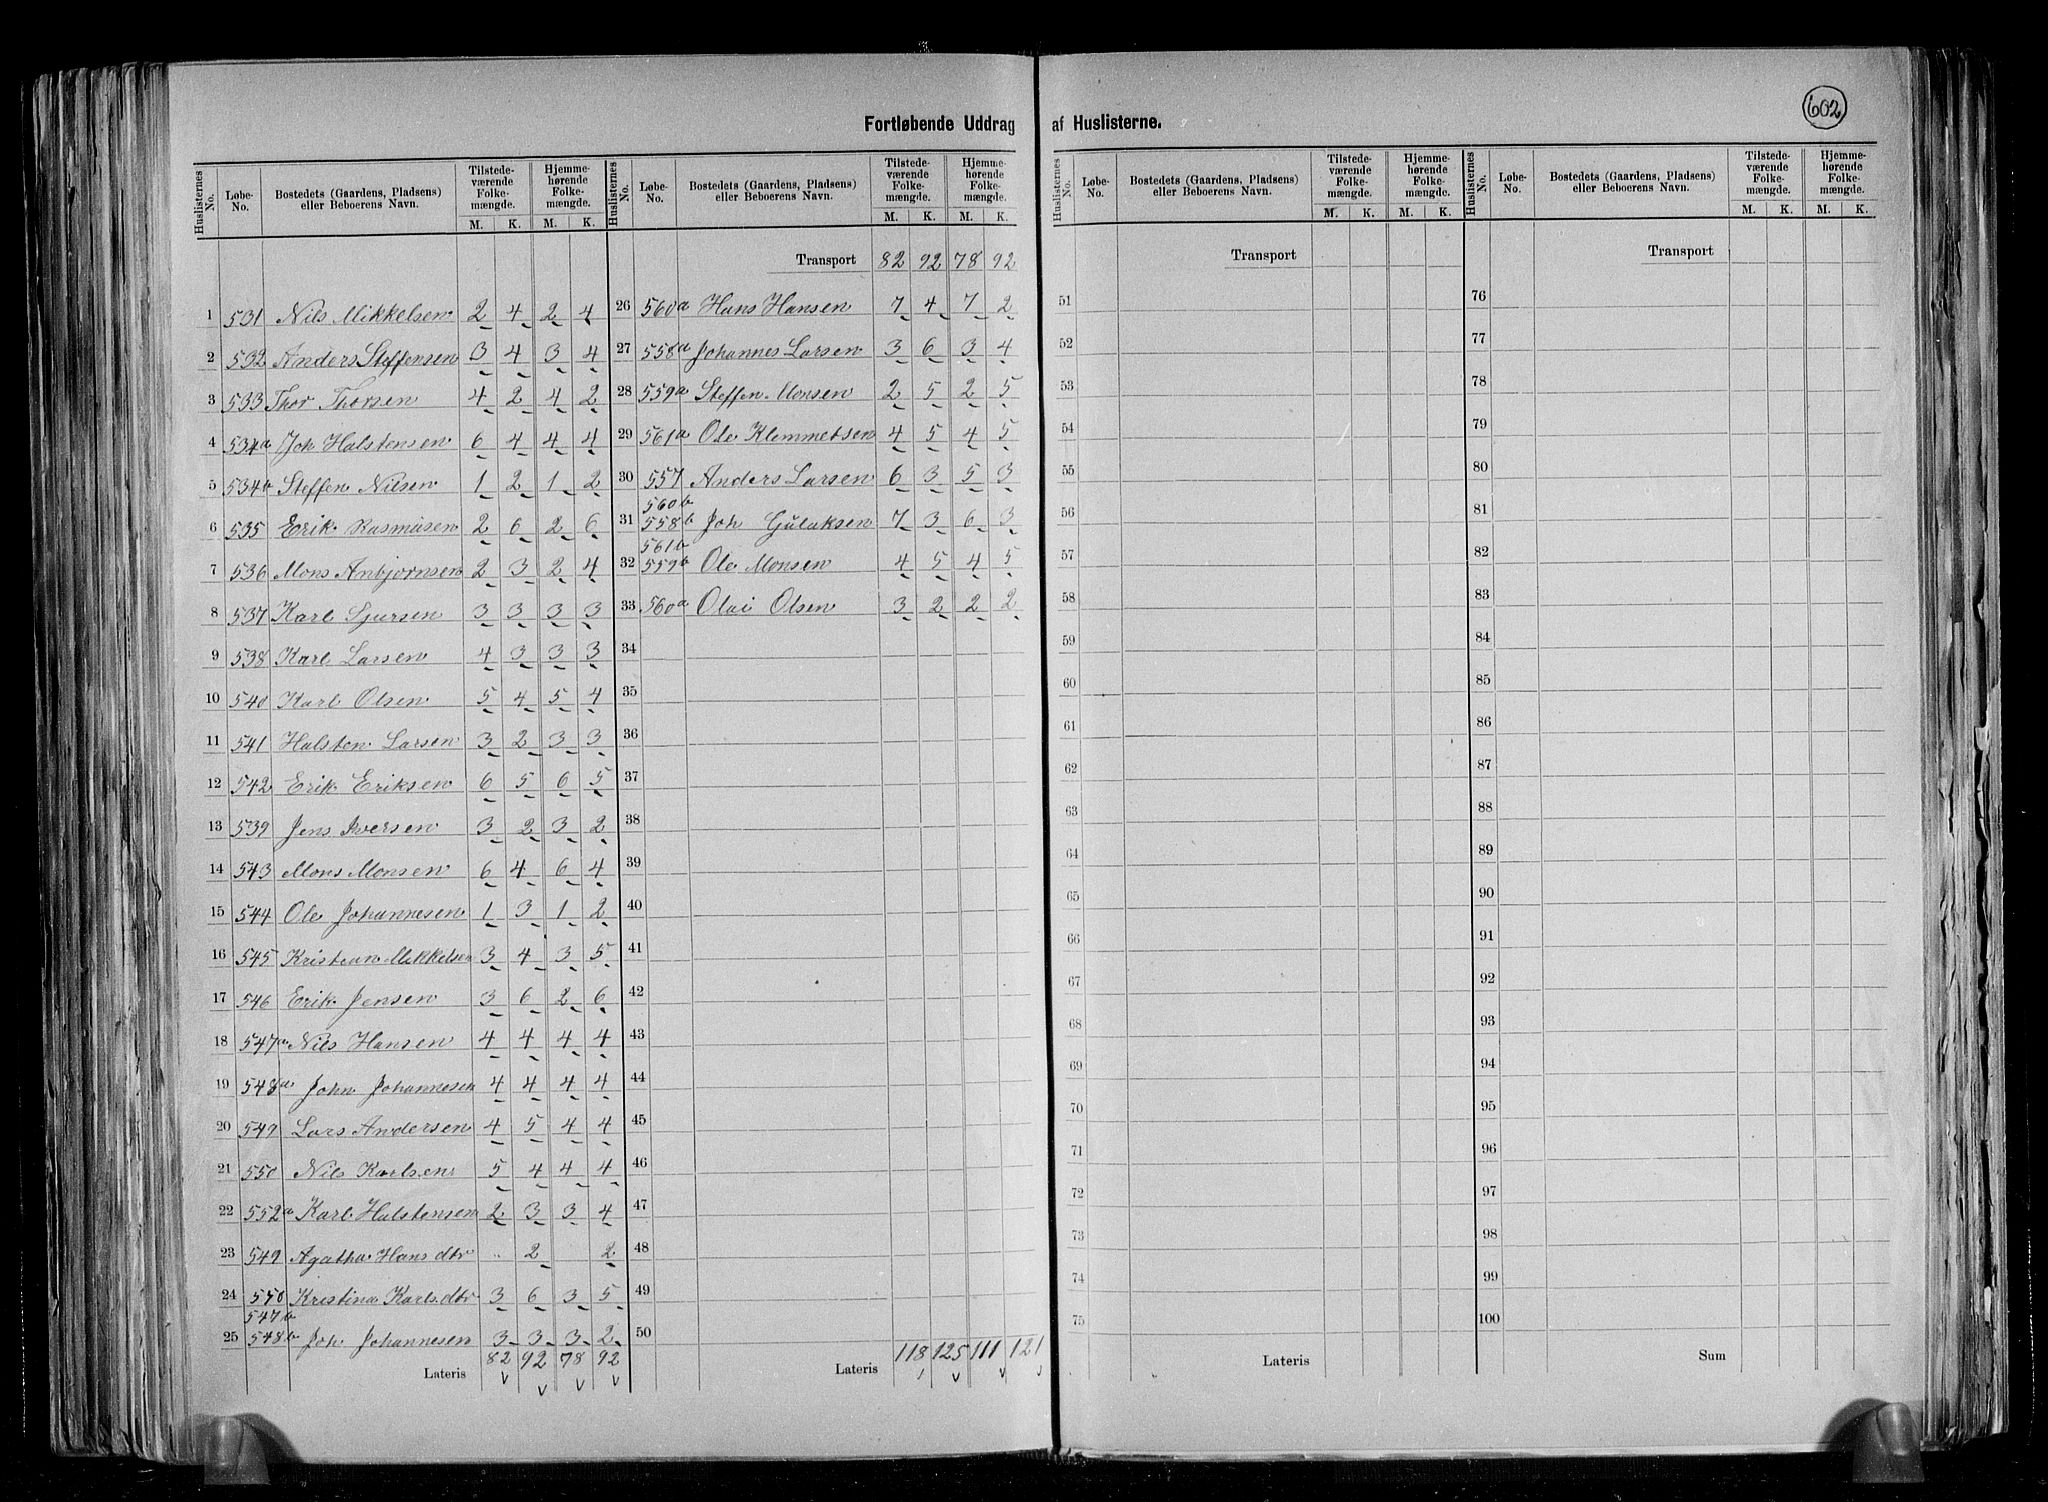 602
Fortløbende Uddrag af Huslisterne.
Huslisternes No. Løbe-No. Bostedets (Gaardens, Pladsens) eller Beboerens Navn. Tilstede-værende Folke-mængde. M. K. Hjemme-hørende Folke-mængde. M. K.
1 531 Nils Mikkelsen 2 4 2 4
2 532 Anders Steffensen 3 4 3 4
3 533 Thor Thorsen 4 2 4 2
4 534a Joh Halstensen 6 4 4 4
5 534b Steffen Nilsen 1 2 1 2
6 535 Erik Rasmusen 2 6 2 6
7 536 Mons Anbjørnsen 2 3 2 4
8 537 Karl Sjursen 3 3 3 3
9 538 Karl Larsen 4 3 3 3
10 540 Karl Olsen 5 4 5 4
11 541 Halsten Larsen 3 2 3 3
12 542 Erik Eriksen 6 5 6 5
13 539 Jens Iversen 3 2 3 2
14 543 Mons Monsen 6 4 6 4
15 544 Ole Johannesen 1 3 1 2
16 545 Kristian Mikkelsen 3 4 3 5
17 546 Erik Jensen 3 6 2 6
18 547a Nils Hansen 4 4 4 4
19 548a John Johannesen 4 4 4 4
20 549 Lars Andersen 4 5 4 4
21 550 Nils Karlsen 5 4 4 4
22 552a Karl Halstensen 2 3 3 4
23 549 Agatha Hans dtr .. 2 2
24 550 Kristina Karls. dtr 3 6 3 5
547b
25 548b Joh Johannesen 3 3 3 2
Lateris 82 92 78 92
Huslisternes No. Løbe-No. Bostedets (Gaardens, Pladsens) eller Beboerens Navn. Tilstede-værende Folke-mængde. M. K. Hjemme-hørende Folke-mængde. M. K.
Transport 82 92 78 92
26 560a Hans Hansen 7 4 7 2
27 558a Johannes Larsen 3 6 3 4
28 559a Steffen Monsen 2 5 2 5
29 561a Ole Klemmetsen 4 5 4 5
30 557 Anders Larsen 6 3 5 3
560b
31 558b Joh Gulaksen 7 3 6 3
561b
32 559b Ole Monsen 4 5 4 5
33 560a Olai Olsen 3 2 2 2
34
35
36
37
38
39
40
41
42
43
44
45
46
47
48
49
50
Lateris 118 125 111 121
Huslisternes No. Løbe-No. Bostedets (Gaardens, Pladsens) eller Beboerens Navn. Tilstede-værende Folke-mængde. M. K. Hjemme-hørende Folke-mængde. M. K.
Transport
51
52
53
54
55
56
57
58
59
60
61
62
63
64
65
66
67
68
69
70
71
72
73
74
75
Lateris
Huslisternes No. Løbe-No. Bostedets (Gaardens, Pladsens) eller Beboerens Navn. Tilstede-værende Folke-mængde. M. K. Hjemme-hørende Folke-mængde. M. K.
Transport
76
77
78
79
80
81
82
83
84
85
86
87
88
89
90
91
92
93
94
95
96
97
98
99
100
Sum